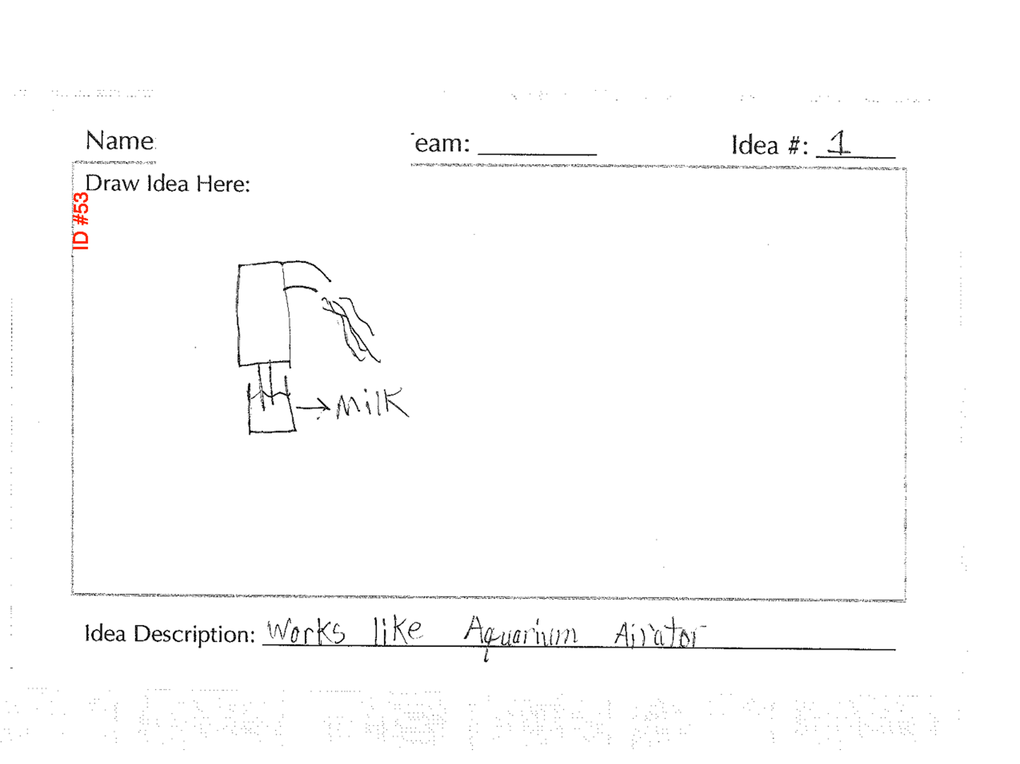 Name:
eam:
Idea #: 1
Draw Idea Here:
ID #53
→ Milk
Idea Description: Works like Aquarium Airator